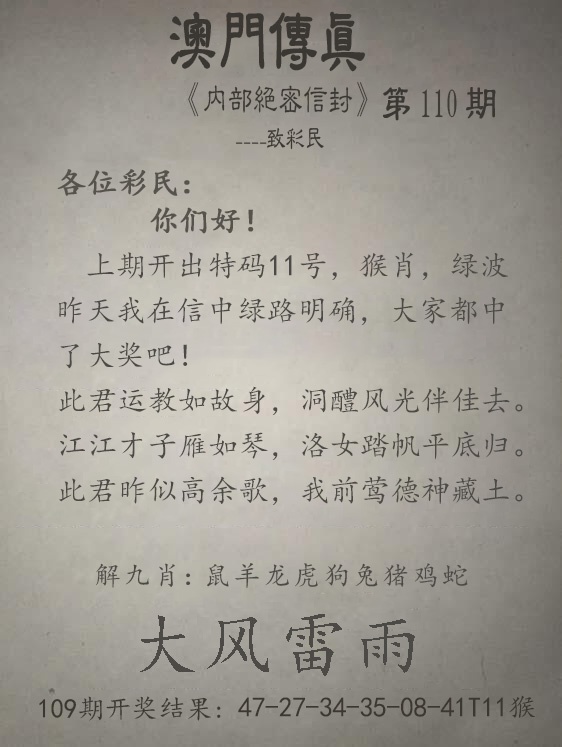 澳門傳眞
《内部絕密信封》第110期
----致彩民
各位彩民：
你们好！
上期开出特码11号，猴肖，绿波
昨天我在信中绿路明确，大家都中
了大奖吧！
此君运教如故身，洞醴风光伴佳去。
江江才子雁如琴，洛女踏帆平底归。
此君昨似高余歌，我前莺德神藏土。
解九肖：鼠羊龙虎狗兔猪鸡蛇
大风雷雨
109期开奖结果：47-27-34-35-08-41T11猴